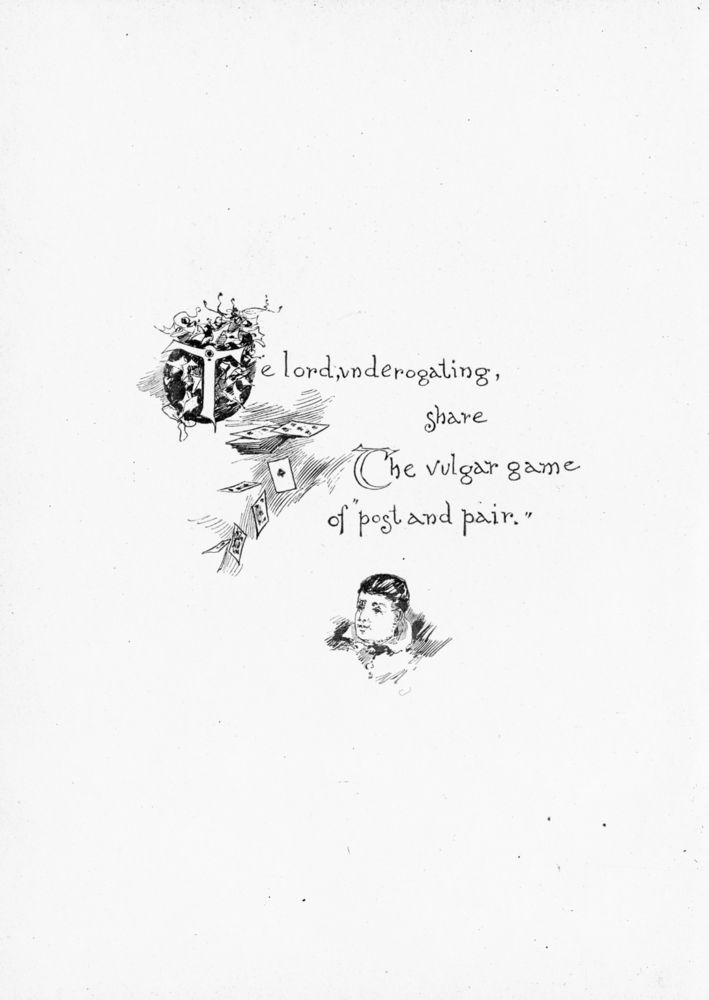 Te lord, vnderogating,
share
The vulgar game
of "post and pair."